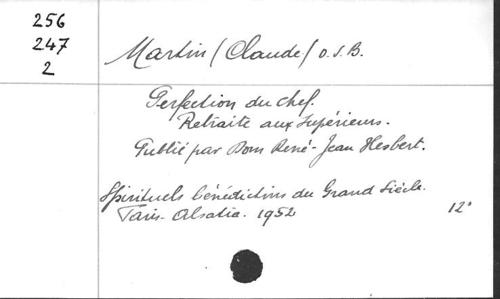 256
247
2
Martin (Claude) O.S.B.
Perfection du chef.
Retraite aux Supérieurs.
Publié par Dom René-Jean Hesbert.
Spirituels bénédictins du Grand Siècle.
Paris - Alsatia. 1952 12°